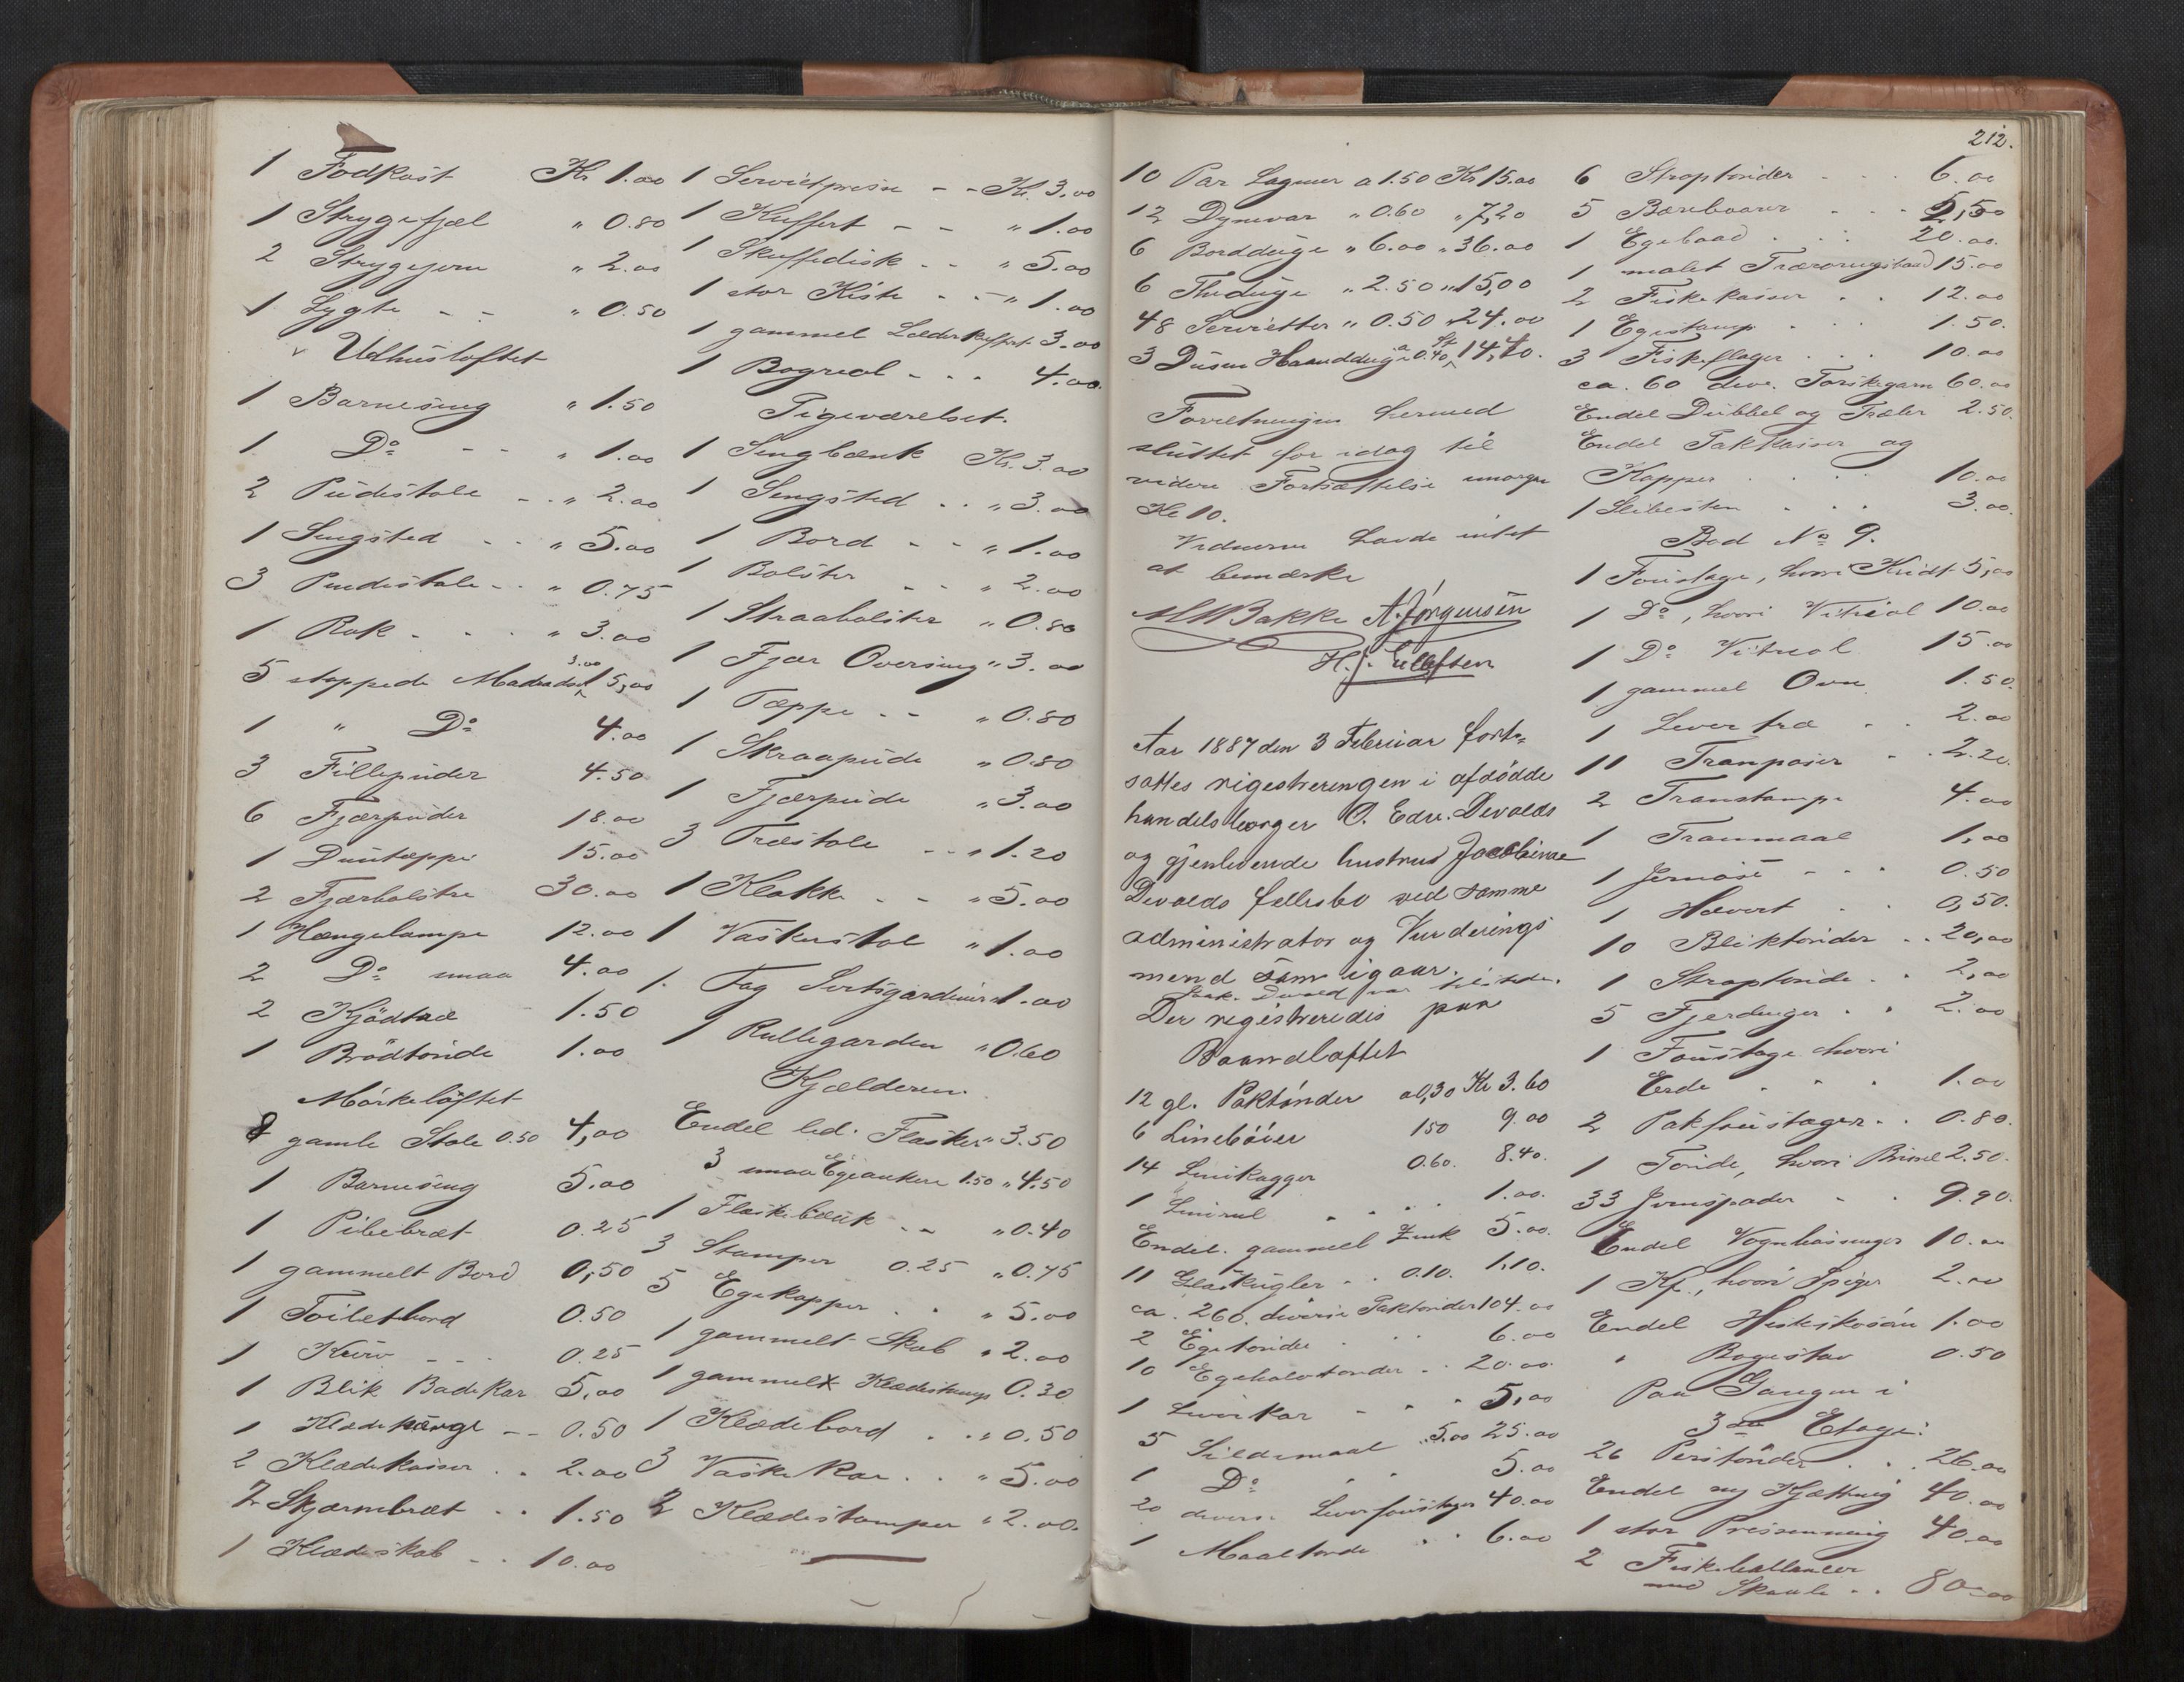 1 Fodkost Kr 1.00
1 Strygefjæl " 0.80
2 Strygejern " 2.00
1 Lygte - - " 0.50
Udhusloftet
1 Barneseng " 1.50
1 Do - - " 1.00
2 Pudestole - - " 2.00
1 Sengsted - - " 5.00
3 Pindestole - - " 0.75
1 Rok - - - " 3.00
5 stoppede Madradser 3.00 15,00
1 " Do 4.00
3 Fillepuder 4.50
6 Fjærpuder 18.00
1 Duntæppe 15.00
2 Fjærbolstre 30.00
1 Hængelampe 12.00
2 Do smaa 4.00
2 Kjödtræ 1.50
1 Brödtönde 1.00
Mörkelöftet
8 gamle Stole 0.50 4,00
1 Barneseng 5.00
1 Pibebræt 0.25
1 gammelt Bord 0,50
1 Toiletbord 0.50
1 Kurv - - - 0.25
1 Blik Badekar 5,00
1 Klædehænge - - 0.50
2 Klædekasser . . 2.00
2 Skjærmbræt . . 1.50
1 Klædeskab - - 10.00
1 Servietpresse - - Kr. 3.00
1 Kuffert - - " 1.00
1 Skuffedisk - - " 5.00
1 stor Kiste - - " 1.00
1 gammel Læderkuffert 3.00
1 Bogreol - - - 4.00
Pigeværelset.
1 Sengbænk Kr. 3.00
1 Sengsted . . " 3.00
1 Bord - - " 1.00
1 Bolster - - " 2.00
1 Straabolster " 0.80
1 Fjær Overseng " 3.00
1 Tæppe - - " 0.80
1 Skraapude " 0.80
1 Fjærpude " 3.00
3 Træstole - - " 1.20
1 Klokke - - " 5.00
1 Vaskestol " 1.00
1. Fag Sertsgardiner " 1.00
1 Rullegarden " 0.60
Kjælderen.
Endel led. Flasker " 3.50
3 smaa Egeankere 1.50 " 4.50
1 Flaskebænk - - " 0.40
3 Stamper 0.25 " 0.75
5 Egekopper . . " 5.00
1 gammelt Skab " 2.00
1 gammelt Klædestamp 0.30
1 Klædebord . . " 0.50
3 Vaskekar . . " 5.00
2 Klædestamper " 2.00.
212.
10 Par Lagener a 1.50 Kr 15.00
12 Dynevar " 0.60 " 7,20
6 Bordduge " 6.00 " 36.00
6 Theduge " 2.50 " 15,00
48 Servietter " 0.50 " 24.00
3 Dusin Haandduge a 0.40 St 14,40.
Forretningen hermed
sluttet for idag til
videre Fortsættelse imorgen
Kl 10.
Vidnerne havde intet
at bemærke
MMBakke A. Jörgensen
H. J. Ellefsen
Aar 1887 den 3 Februar fort-
sattes registreringen i afdödde
handelsborger O. Edv. Devolds
og gjenlevende hustrus Jacobine
Devolds fellesbo ved samme
administrator og Vurderings
mend som igaar.
Jak. Devold var tilstede.
Der registreredes paa
Baandloftet
12 gl. Paktönder a 0,30 Kr 3.60
6 Linebøier 150 9.00
14 Linekagger 0.60. 8.40.
1 Linerul . . . . 1.00.
Endel. gammel Zink 5.00.
11 Glaskugler . . 0.10. 1.10.
ca. 260. diverse Paktönder 104.00
2 Egetönder . . . 6.00
10 Egehalvtonder . . 20.00.
1 Leverkar - - . 5,00
5 Sildemaal . 5.00 25.00
1 Do " " 5.00
20 diverse Leverfoustager 40.00
1 Maaltönde . . 6.00
6 Straptönder - - - 6.00
5 Bærebaarer . . . 2,50
1 Egebaad . . . 20.00.
1 malet Træroringsbaad 15.00
2 Fiskekasser . . 12.00
1 Egestamp . . . 1.50.
3 Fiskeflager . . . 10.00
ca. 60 dive. Torskegarn 60.00
Endel Dubbel og Træler 2.50.
Endel Pakkasser og
Kopper . . . . 10.00
1 Slibesten . . . 3.00.
Bod No 9.
1 Foustage, hvori Kridt 5,00
1 Do, hvori Vitriol 10.00
1 Do Vitriol 15.00
1 gammel Ovn 1.50.
1 Levertræ . . 2.00
11 Tranposer . . 2.20.
2 Transtampe 4.00
1 Tranmaal 1,00
1 Jernöse - - - 0.50
1 Hævert . . 0,50.
10 Bliktönder . . 20,00
1 Straptönde . . 2,00
5 Fjerdinger . . 2.00
1 Foustage hvori
Erde . . . 1.00
2 Pakfoustager . . 0.80.
1 Tönde, hvori Brisel 2.50.
33 Jernspader . . 9.90.
Endel Vognbösninger 10.00
1 Kf., hvori Spiger 2.00
Endel Hesteskosöm 1.00
" Bogestav 0.50
Paa Gangen i
3die Etage:
26 Perstönder . . . 26.00
Endel ny Kjætting 40.00
1 stor Presenning 40.00
2 Fiskeballancer
med Skaale . . 80.00